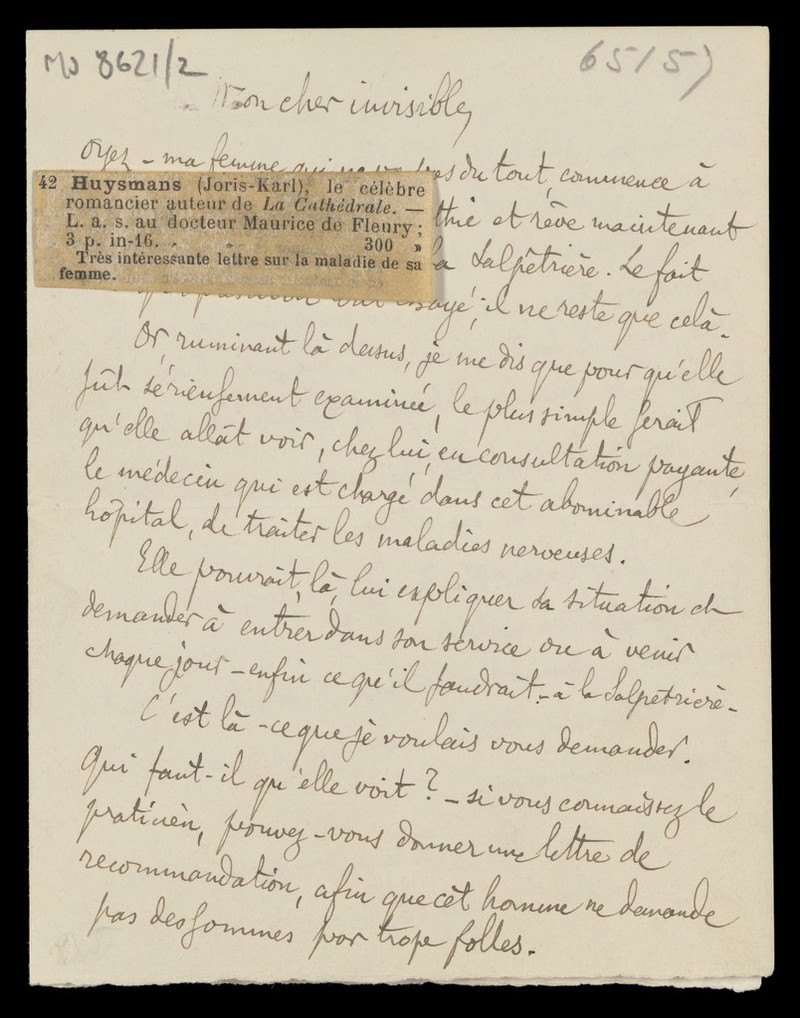 MJ 8621/2
6515)
Mon cher invisible,
Oyez – ma femme qui ne va pas du tout, commence à
42 Huysmans (Joris-Karl), le célèbre
romancier auteur de La Cathédrale. —
L. a. s. au docteur Maurice de Fleury;
3 p. in-16. 300 »
Très intéressante lettre sur la maladie de sa
femme.
thie et rêve maintenant
la Salpêtrière. Le fait
essayé; il ne reste que celà.
Or, ruminant là dessus, je me dis que pour qu'elle
fût sérieusement examinée, le plus simple serait
qu'elle allât voir, chez lui, en consultation payante,
le médecin qui est chargé dans cet abominable
hôpital, de traiter les maladies nerveuses.
Elle pourrait, là, lui expliquer sa situation et
demander à entrer dans son service ou à venir
chaque jour – enfin ce qu'il faudrait – à la Salpetrière –
C'est là – ce que je voulais vous demander.
Qui faut-il qu'elle voit? – si vous connaissez le
praticien, pouvez-vous donner une lettre de
recommandation, afin que cet homme ne demande
pas des sommes par trop folles.